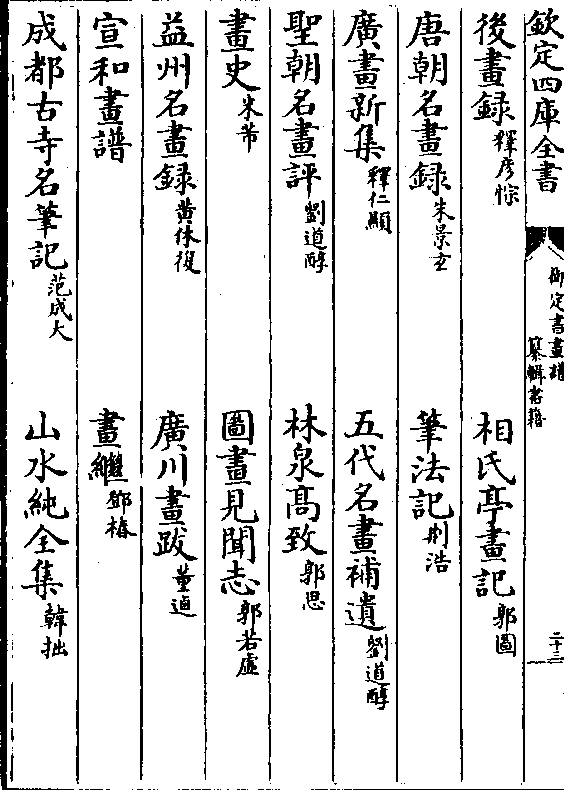 欽定四庫全書
御定書畫譜
纂輯書籍
二十三
後畫録 釋彦悰
相氏亭畫記 郭圖
唐朝名畫録 朱景玄
筆法記 荆浩
廣畫新集 釋仁顯
五代名畫補遺 劉道醇
聖朝名畫評 劉道醇
林泉髙致 郭思
畫史 米芾
圖畫見聞志 郭若虛
益州名畫録 黄休復
廣川畫跋 董逌
宣和畫譜
畫繼 鄧椿
成都古寺名筆記 范成大
山水純全集 韓拙